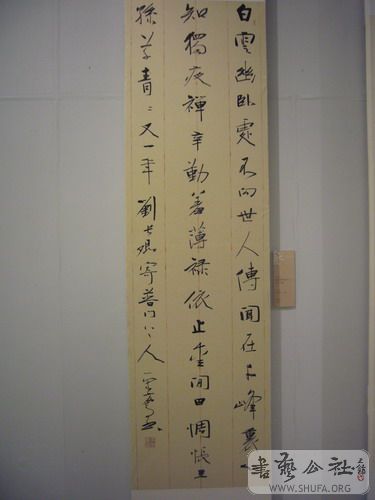 白雲幽臥處不向世人傳聞在千峰裏心
知獨夜禪辛勤羞薄祿依止愛閒田惆悵王
孫草青〻又一年 劉長卿寄普門上人
書藝公社
WWW.SHUFA.ORG